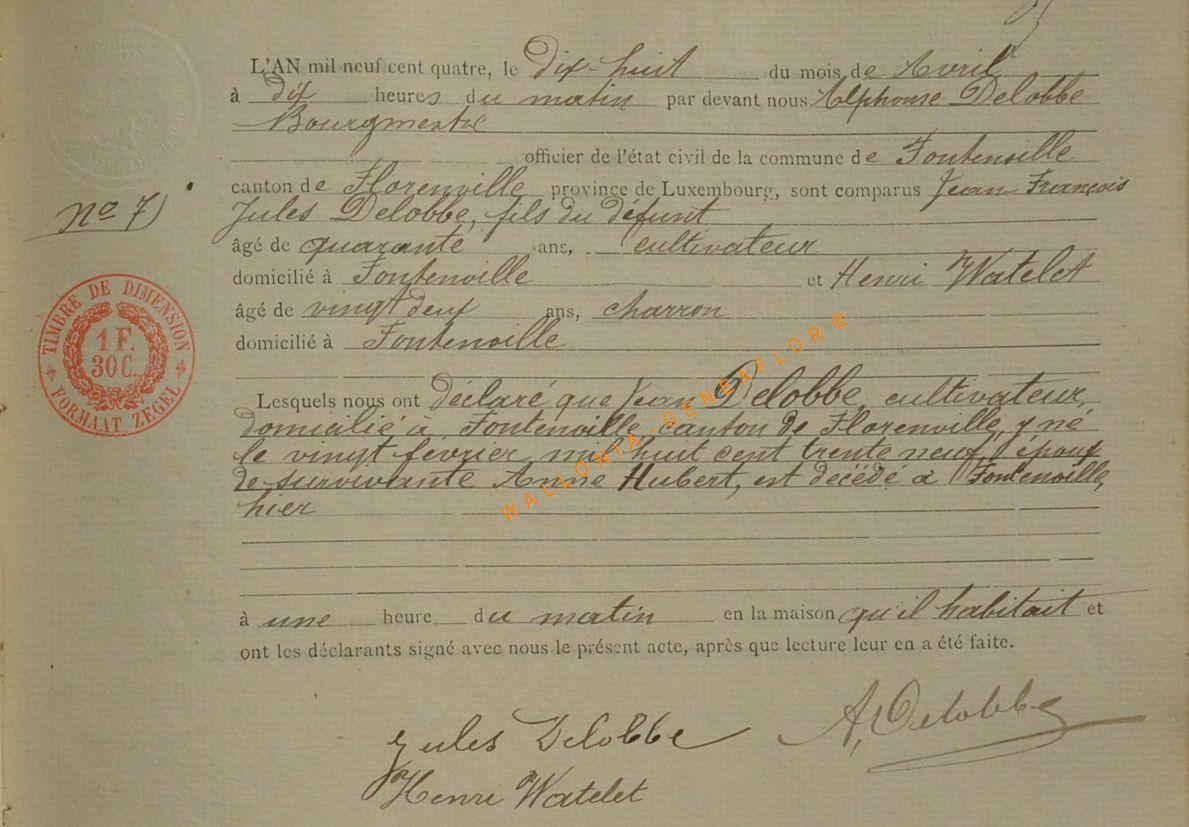 L'AN mil neuf cent quatre, le dix-huit du mois de Avril
à dix heures du matin par devant nous Alphonse Delobbe
Bourgmestre
officier de l'état civil de la commune de Fontenoille
canton de Florenville province de Luxembourg, sont comparus Jean François
No 7)
Jules Delobbe, fils du défunt
âgé de quarante ans, cultivateur
domicilié à Fontenoille et Henri Watelet
âgé de vingt deux ans, charron
domicilié à Fontenoille
TIMBRE DE DIMENSION
1 F.
30 C.
FORMAAT ZEGEL
Lesquels nous ont déclaré que Jean Delobbe, cultivateur,
domicilié à Fontenoille, canton de Florenville, y né
le vingt février mil huit cent trente neuf, époux
de survivante Anne Hubert, est décédé à Fontenoille,
hier
WALLONIA-GENEAFLOR®
à une heure du matin en la maison qu'il habitait et
ont les déclarants signé avec nous le présent acte, après que lecture leur en a été faite.
A, Delobbe
Jules Delobbe
Henri Watelet